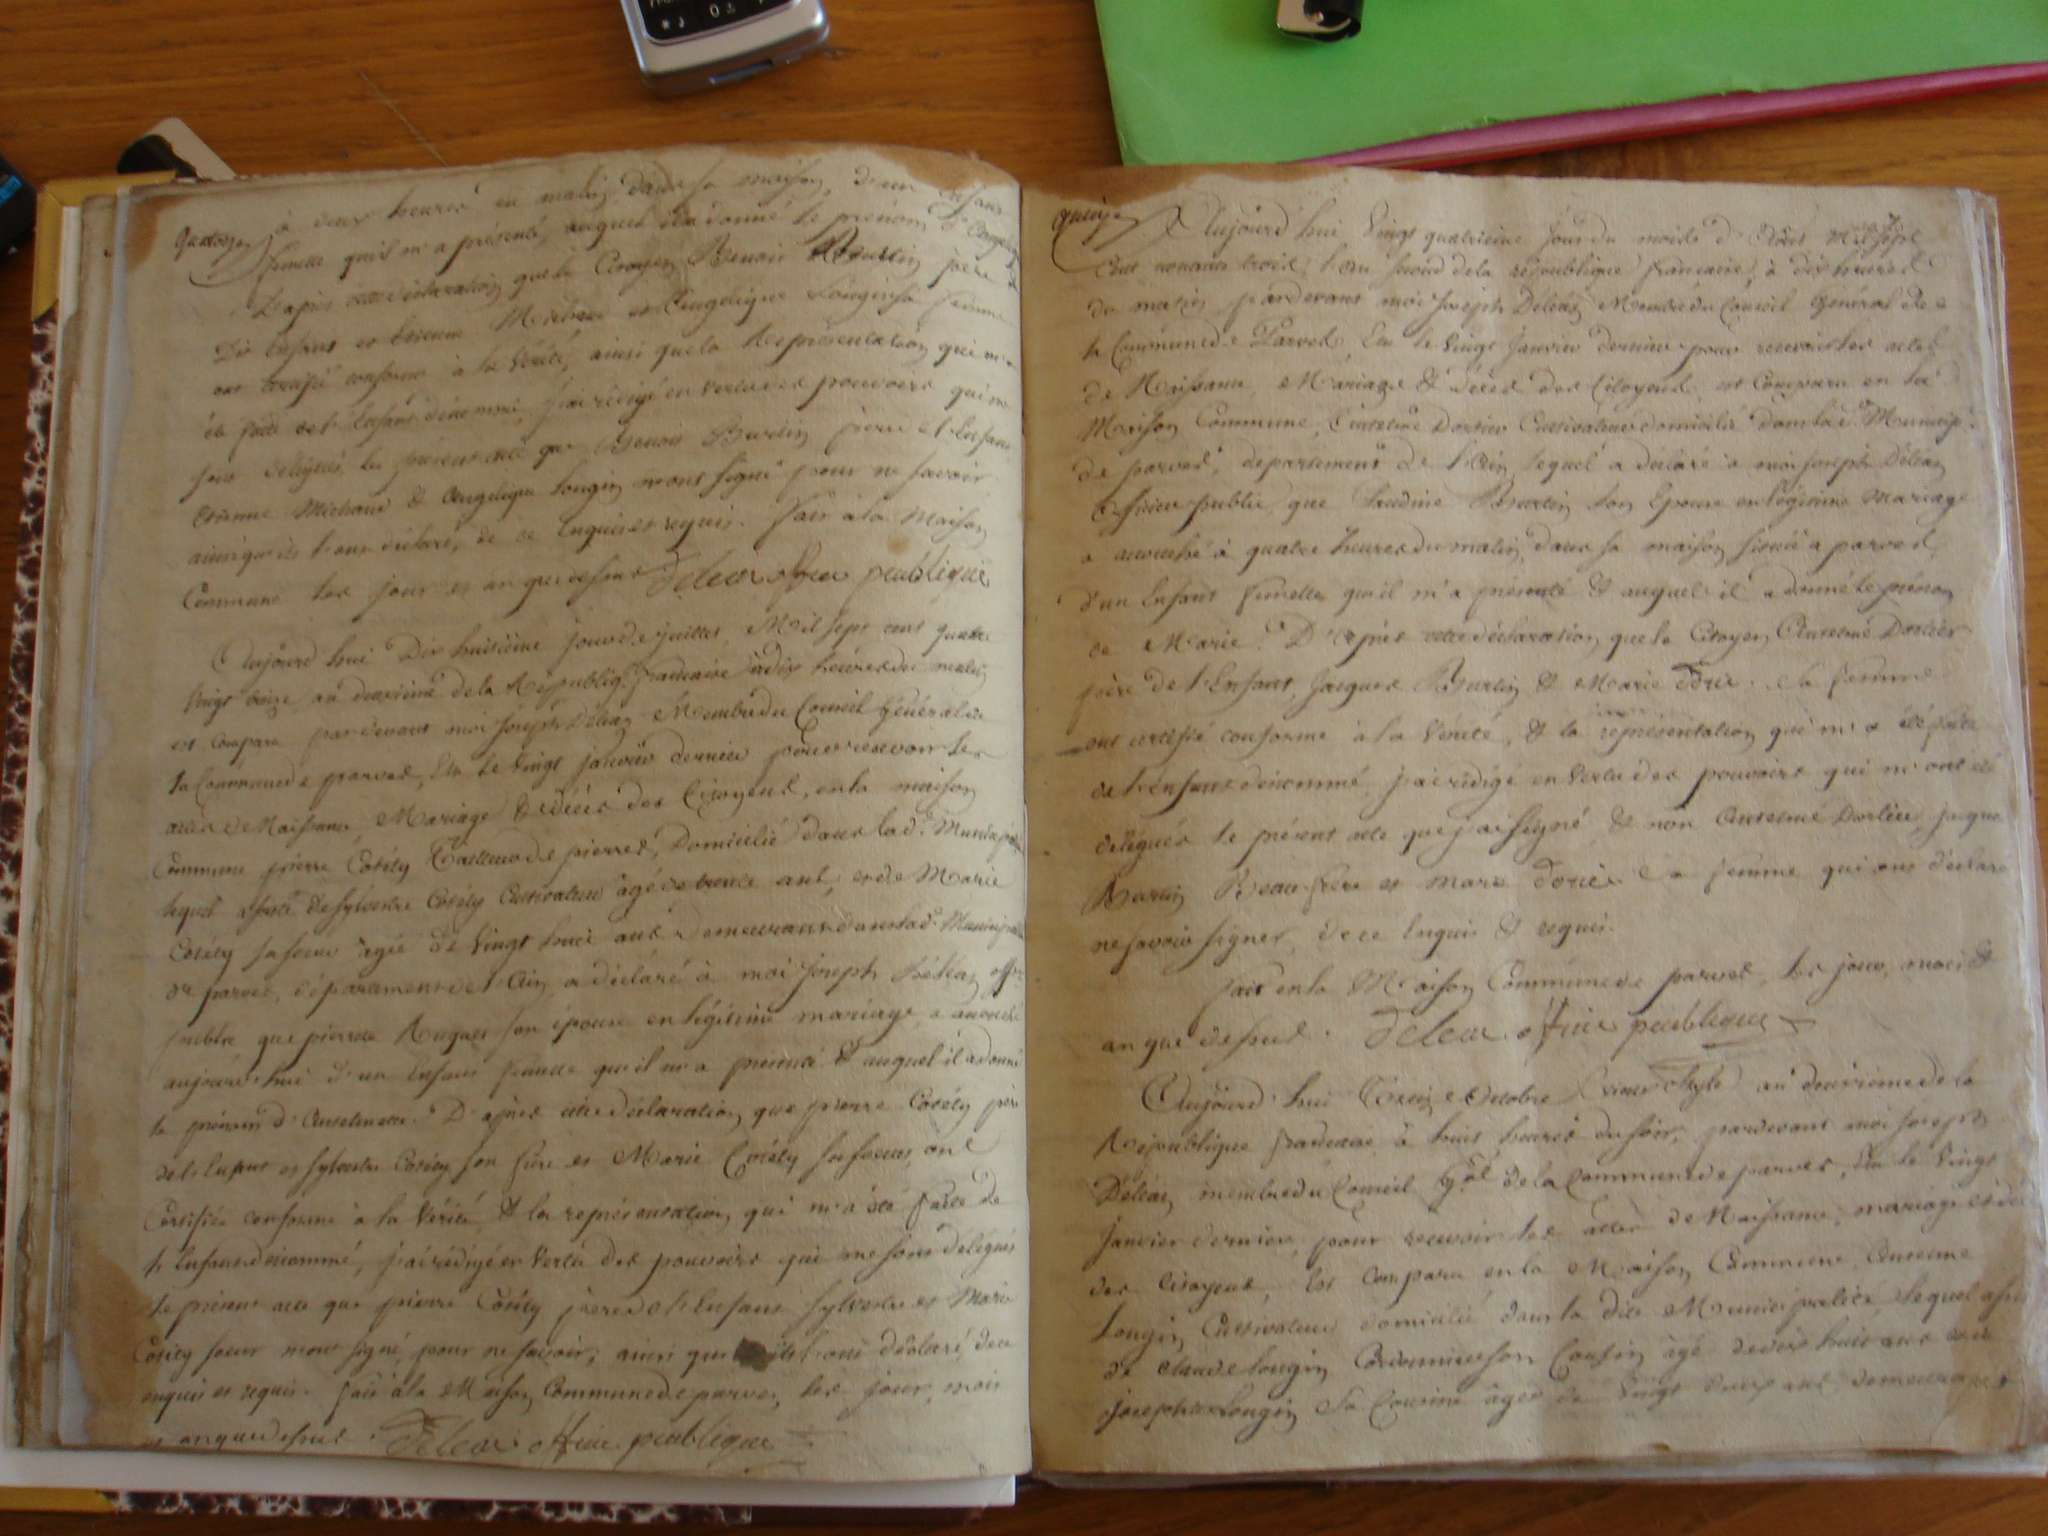 quatorze
à deux heures du matin, dans sa maison, d'un Enfant
femelle qu'il m'a présenté, auquel il a donné le prénom
D'après cette déclaration que le Citoyen Benoit Burtin père
Dit Enfant et Etienne Michaud et Angelique Longin sa femme
ont certifié conforme à la Vérité, ainsi que la Représentation qui m'a
été faite de l'Enfant dénommé, j'ai rédigé en vertu des pouvoirs qui me
sont délégués, le présent acte que Benoit Burtin père de l'Enfant
Etienne Michaud & Angelique Longin n'ont signé pour ne savoir
ainsi qu'ils l'ont déclaré, de ce Enquis et requis. Fait à la Maison
Commune les jour et an que dessus Deleaz officier peublique
Aujourd'hui Dix huitième jour de juillet, Mil sept cent quatre
Vingt treize an deuxième de la Républiq. francaise à dix heures du matin
est comparu pardevant moi Joseph Deléaz Membre du Conseil Général de
la Commune de parves, Elu le Vingt janvier dernier pour recevoir les
actes de Naissance, Mariage & décès des Citoyens, en la maison
Commune pierre Cotéty Tailleur de pierres, Domicilié dans lad. Municip
lequel assisté de Sylvestre Cotéty Cultivateur âgé de trente ans, et de Marie
Cotéty sa soeur âgée de Vingt ans demeurant dans lad. Municipa
de parves, département de l'Ain, a déclaré à moi Joseph Deléaz offic
public que pierrette Hugues son épouse en légitime mariage, a accouché
aujourd'hui d'un Enfant femelle qu'il m'a présenté & auquel il a donné
le prénom d'Anselmette. D'après cette déclaration, que pierre Cotéty père
de l'Enfant et Sylvestre Cotéty son frère et Marie Cotéty sa soeur, ont
Certifié conforme à la Vérité, & la représentation, qui m'a été faite de
l'Enfant dénommé, j'ai rédigé en Vertu des pouvoirs qui me sont délégués
le présent acte que pierre Cotéty père de l'Enfant Sylvestre et Marie
Cotéty soeur n'ont signé, pour ne savoir, ainsi que ils l'ont déclaré, de ce
enquis et requis. Fait à la Maison Commune de parves, les jour, mois
et an que dessus. Deleaz officier peublique
quinze
Aujourd'hui Vingt quatrieme jour du mois d' Mil Sept
Cent nonante trois, l'an second de la république francaise, à dix heures
du matin pardevant moi Joseph Deléaz Membre du Conseil Général de
la Commune de Parves, Elu le Vingt Janvier dernier pour recevoir les actes
de Naissance, Mariage & décès des Citoyens, est Comparu en la
Maison Commune, Anselme Dortier Cultivateur domicilié dans lad. Municip.
de parves, département de l'Ain lequel a déclaré à moi Joseph Deléaz
officier public que Claudine Burtin son Epouse en légitime Mariage
a accouché à quatre heures du matin, dans sa maison située à parves,
d'un Enfant femelle qu'il m'a présenté & auquel il a donné le prénom
de Marie. D'après cette déclaration que le Citoyen Anselme Dortier
père de l'Enfant, Jacques Burtin & Marie sa femme
ont certifié conforme à la Vérité, & la représentation qui m'a été faite
de l'Enfant dénommé, j'ai rédigé en Vertu des pouvoirs qui m'ont été
délégués le présent acte que j'ai signé & non Anselme Dortier, Jaque
Burtin Beau frere et Marie sa femme qui ont déclaré
ne savoir signer, de ce Enquis & requis.
fait en la Maison Commune de parves, les jour, mois &
an que dessus. Deleaz officier peublique
Aujourd'hui Octobre (vieux Style) an deuxième de la
République francaise, à huit heures du soir, pardevant moi Joseph
Deléaz, membre du Conseil gral de la Commune de parves, Elu le Vingt
Janvier dernier, pour recevoir les actes de Naissance, mariage et décès
des Citoyens, Est Comparu en la Maison Commune Anselme
Longin Cultivateur domicilié dans la dite Municipalité, lequel assisté
de Claude Longin Cordonnier son Cousin âgé de dix huit ans et de
Josephte Longin Sa Cousine âgée de Vingt ans demeurants